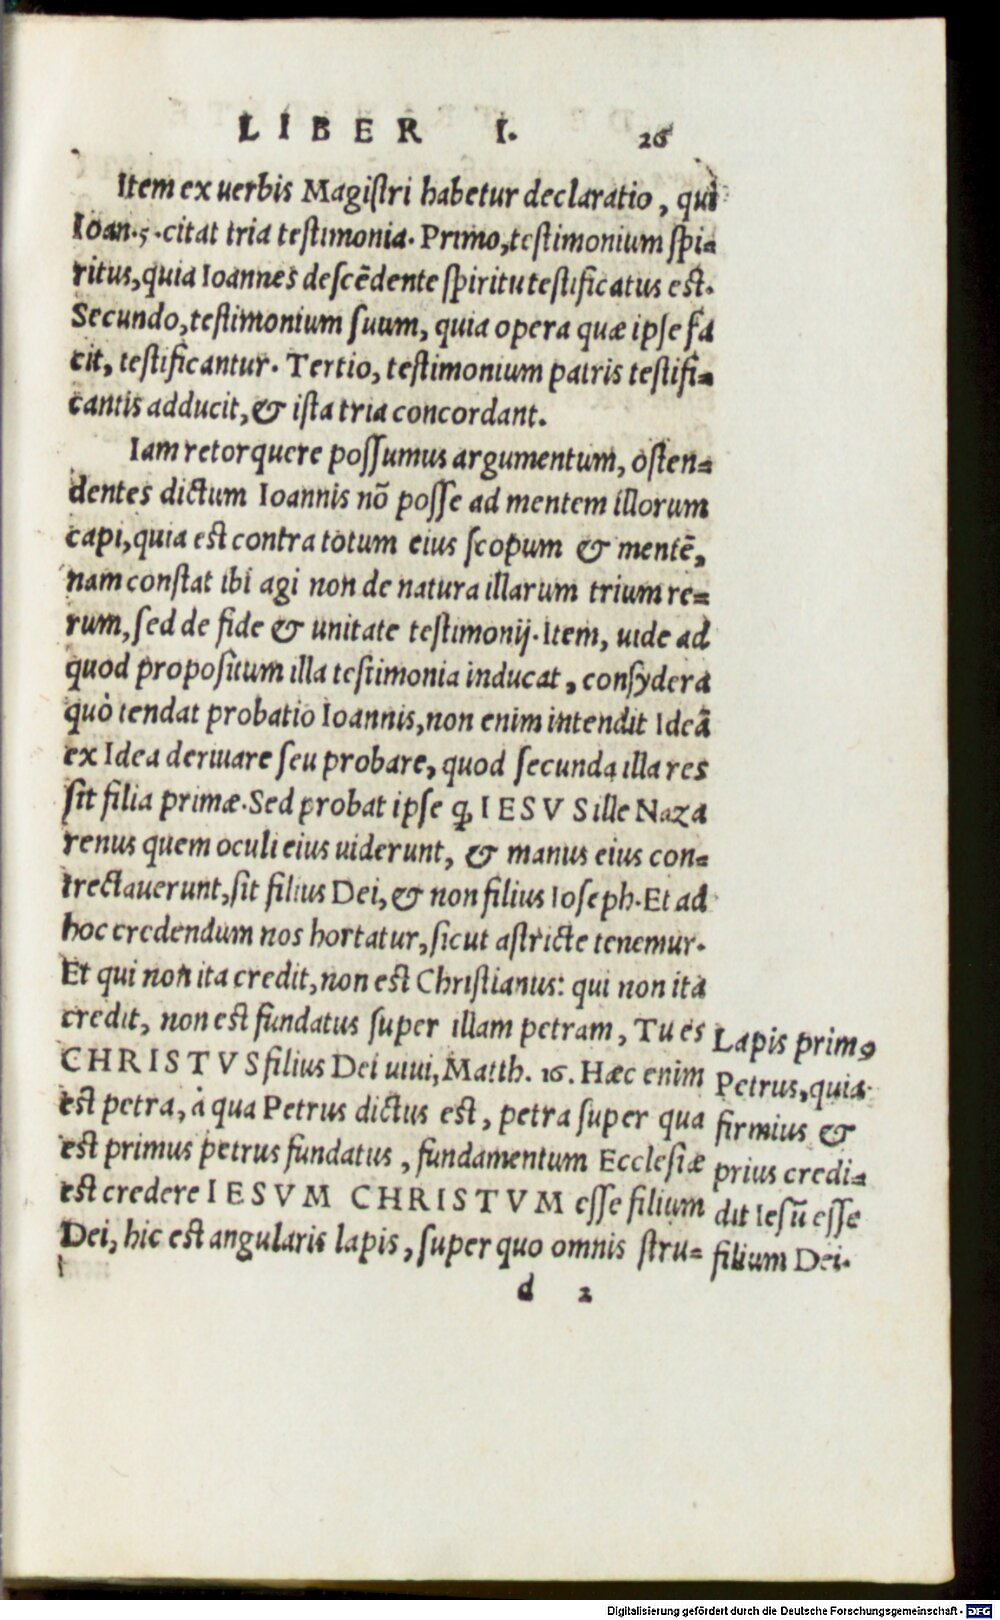 LIBER I. 26
Item ex uerbis Magiſtri habetur declaratio, qui
Ioan. 5. citat tria teſtimonia. Primo, teſtimonium ſpi=
ritus, quia Ioannes deſcẽdente ſpiritu teſtificatus eſt.
Secundo, teſtimonium ſuum, quia opera quæ ipſe fa
cit, teſtificantur. Tertio, teſtimonium patris teſtifi=
cantis adducit, & iſta tria concordant.
Iam retorquere poſſumus argumentum, oſten=
dentes dictum Ioannis nõ poſſe ad mentem illorum
capi, quia eſt contra totum eius ſcopum & mentẽ,
nam conſtat ibi agi non de natura illarum trium re=
rum, ſed de fide & unitate teſtimonij. Item, uide ad
quod propoſitum illa teſtimonia inducat, conſydera
quò tendat probatio Ioannis, non enim intendit Ideã
ex Idea deriuare ſeu probare, quod ſecunda illa res
ſit filia primæ. Sed probat ipſe ꝙ IESVS ille Naza
renus quem oculi eius uiderunt, & manus eius con=
trectauerunt, ſit filius Dei, & non filius Ioſeph. Et ad
hoc credendum nos hortatur, ſicut aſtricte tenemur.
Et qui non ita credit, non eſt Chriſtianus: qui non ita
credit, non eſt fundatus ſuper illam petram, Tu es
CHRISTVS filius Dei uiui, Matth. 16. Hæc enim
eſt petra, à qua Petrus dictus eſt, petra ſuper qua
eſt primus petrus fundatus, fundamentum Eccleſiæ
eſt credere IESVM CHRISTVM eſſe filium
Dei, hic eſt angularis lapis, ſuper quo omnis ſtru=
Lapis primꝰ
Petrus, quia
firmius &
prius credi=
dit Ieſũ eſſe
filium Dei.
d 2
Digitalisierung gefördert durch die Deutsche Forschungsgemeinschaft - DFG